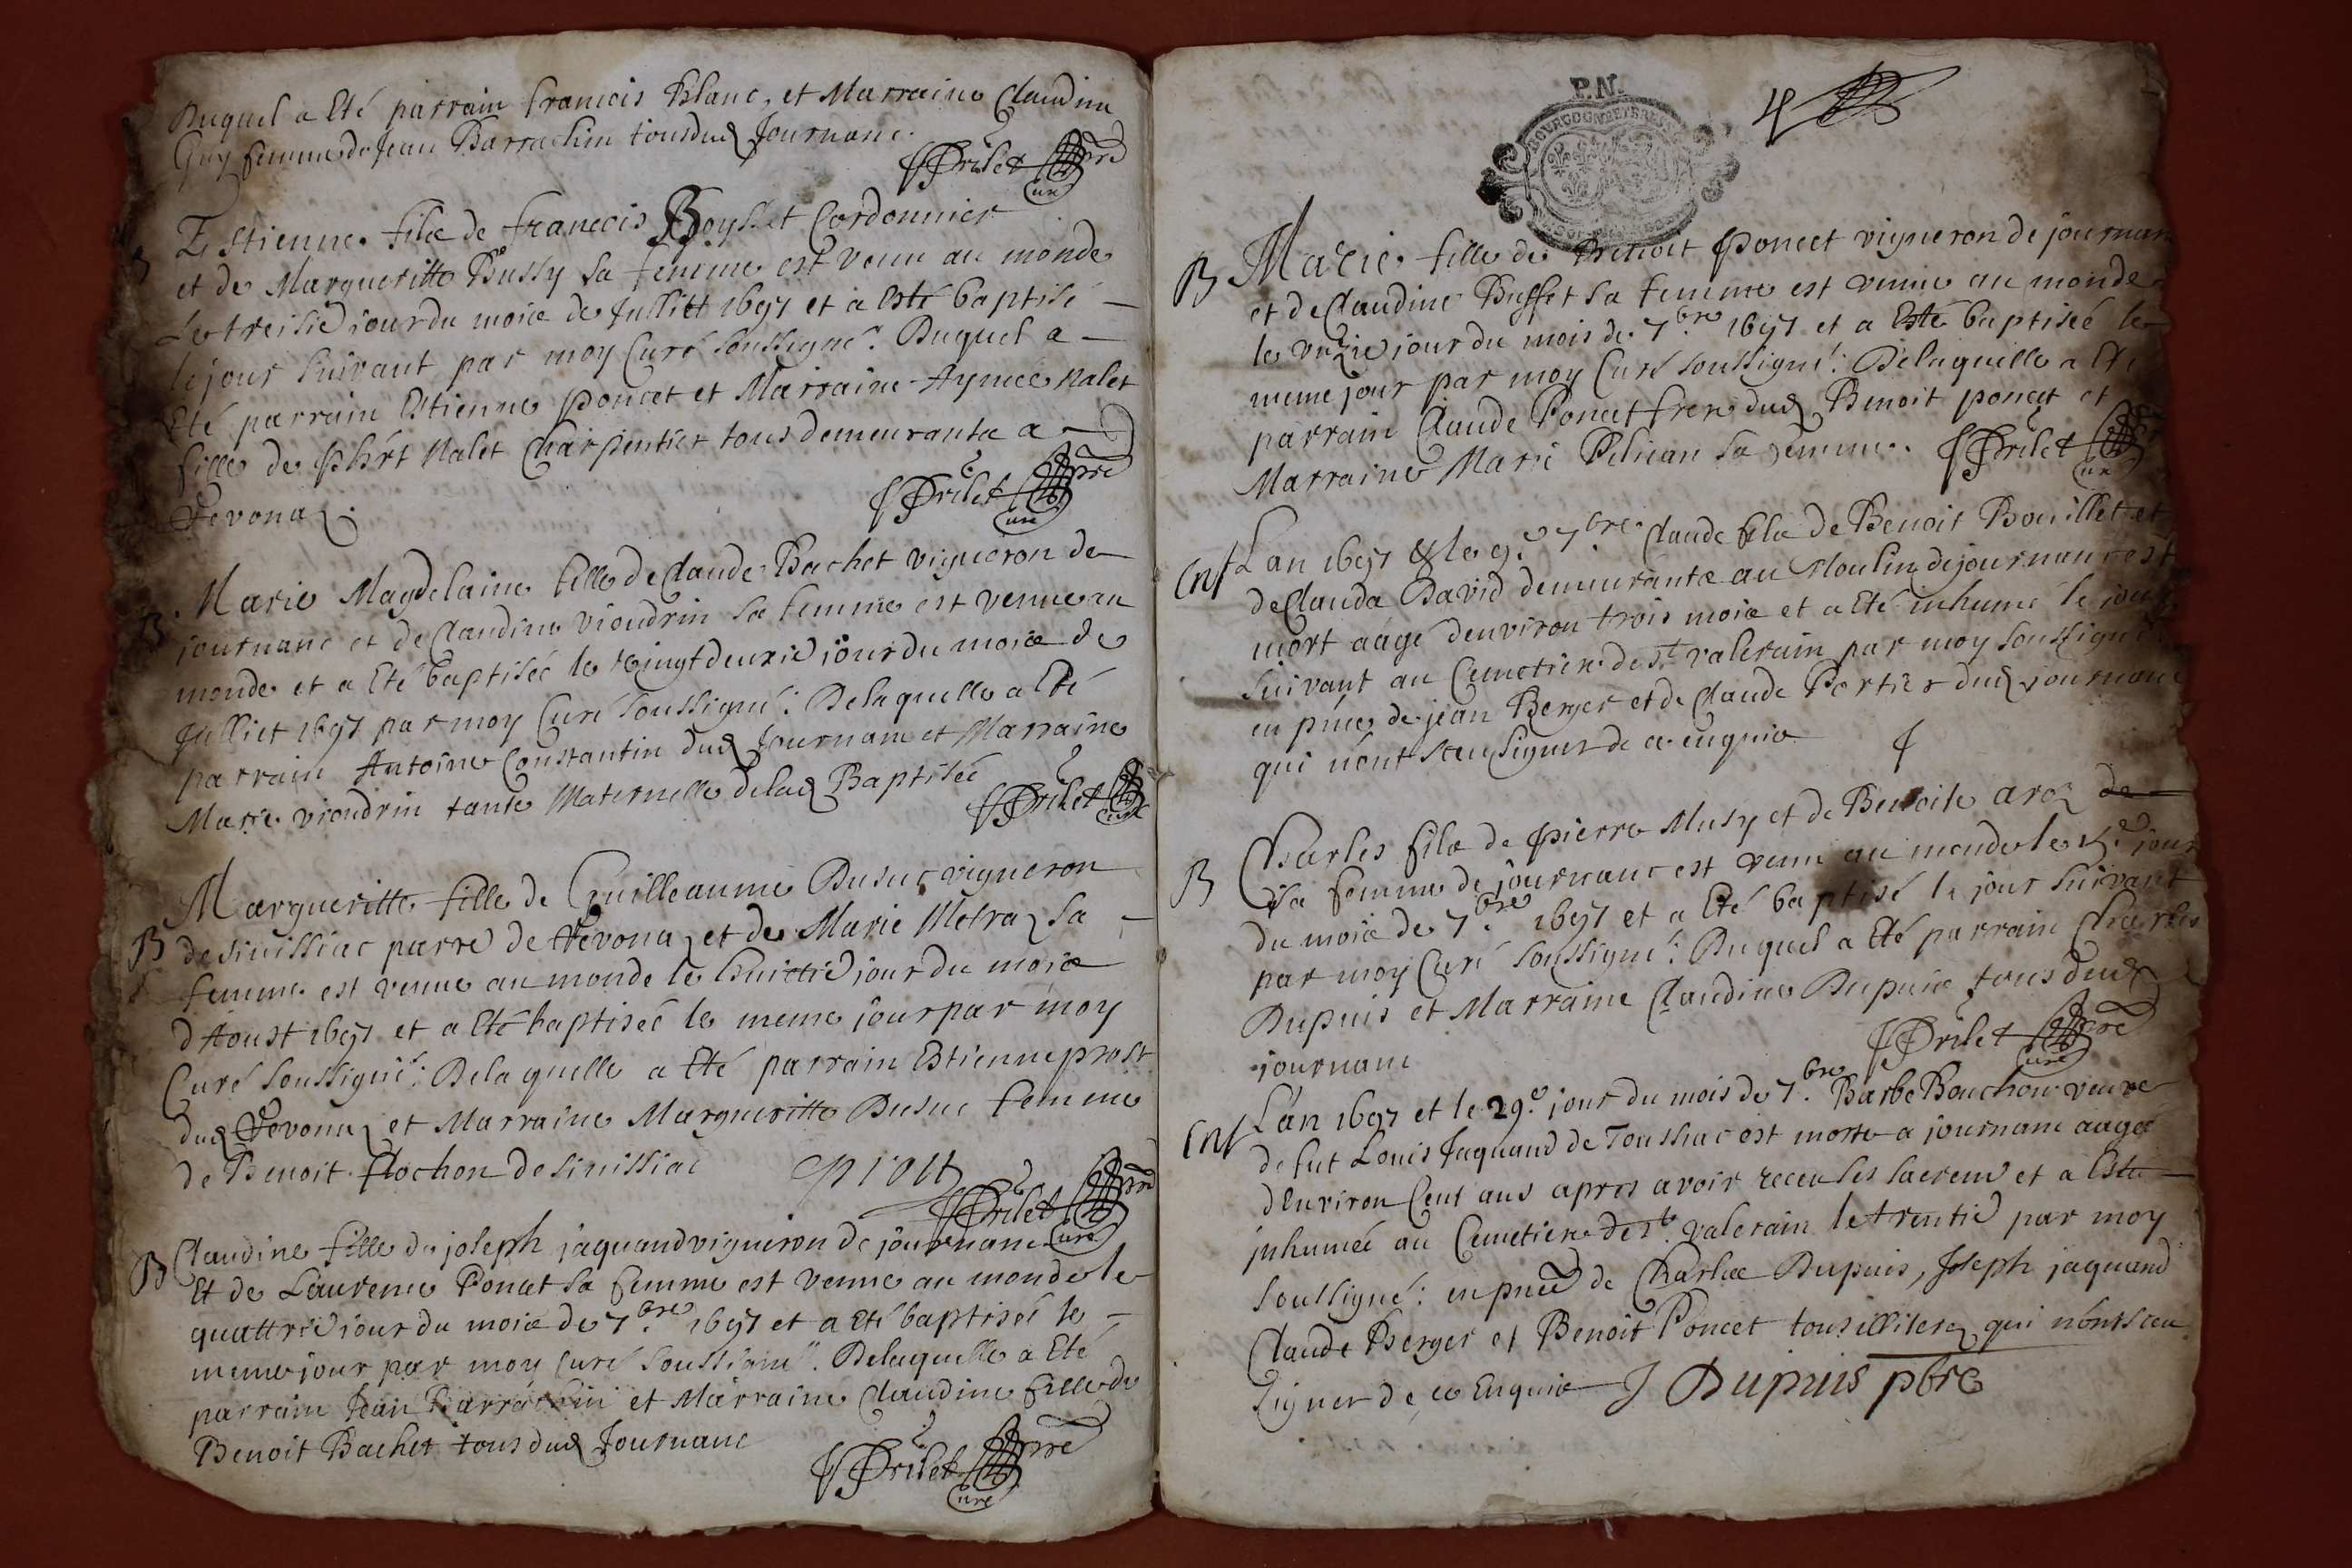 Duquel a Eté parrain francois Blanc, et Marraine Claudine
Guy femme de Jean Barrachin tous dud Journanc.
Drilet pre
Curé
B
Estienne fils de francois Boysset Cordonnier
et de Margueritte Bussy sa femme est venu au monde
le treisie jour du mois de Julliet 1697 et a esté baptisé
le jour suivant par moy Curé soussigné: Duquel a
Eté parrain Estienne Poncet et Marraine Aymeé Nalet
fille de Nalet Charpentier tous demeurants a
Revonaz.
Drilet pre
Curé
B
Marie Magdelaine fille de Claude Bachet vigneron de
journanc et de Claudine vioudrin sa femme est venue au
monde et a Eté baptiseé le vingtdeuxie jour du mois de
Julliet 1697 par moy Curé soussigné: Delaquelle a Eté
parrain Antoine Constantin dud Journanc et Marraine
Marie vioudrin tante Maternelle delad Baptiseé
Drilet
Curé
B
Margueritte fille de Guilleaume Dusuc vigneron
de sinissiac parre de Revonaz et de Marie Metraz sa
femme est venue au monde le huictie jour du mois
d'Aoust 1697 et a Eté baptiseé le meme jour par moy
Curé soussigné: Delaquelle a Eté parrain Estienne prost
dud Revonaz et Marraine Margueritte Dusuc femme
de Benoit flochon de sinissiac
Drilet pre
Curé
B Claudine fille de joseph jaquand vigneron de journanc
Et de Laurence Poncet sa femme est venue au monde le
quattrie jour du mois de 7.bre 1697 et a eté baptiseé le
meme jour par moy Curé soussigné: Delaquelle a Eté
parrain Jean Barrachin et Marraine Claudine fille de
Benoit Bachet tous dud Journanc
Drilet pre
Curé
P.N.
B
Marie fille de Benoit Poncet vigneron de journanc
et de Claudine Buffet sa femme est venue au monde
le jour du mois de 7.bre 1697 et a Esté baptiseé le
meme jour par moy Curé soussigné: Delaquelle a Eté
parrain Claude Poncet frere dud Benoit poncet et
Marraine Marie sa femme. Drilet
Curé
L'an 1697 & le 9.e 7.bre Claude fils de Benoit Bouillet et
de Clauda David demeurants au Moulin de journanc est
mort aagé d'environ trois mois et a Eté inhumé le jour
suivant au Cemetiere de st valerain par moy soussigné
en pnce de jean Berger et de Claude Portier dud journanc
qui n'ont sceu signer de ce enquis
B
Charles fils de pierre Musy et de Benoite aroz de
sa femme de journanc est venu au monde le jour
du mois de 7.bre 1697 et a Eté baptisé le jour suivant
par moy Curé soussigné: Duquel a Eté parrain Charles
Dupuis et Marraine Claudine Dupuis tous dud
journanc
Drilet pre
Curé
L'an 1697 et le 29.e jour du mois de 7.bre Barbe Bouchon veuve
de fut Louis Jaquand de Toussiac est morte a journanc aageé
d'Environ Cent ans apres avoir receu les sacrem et a Esté
jnhumeé au Cemetiere de st valerain le trentie par moy
soussigné: en pnce de Charles Dupuis, Joseph jaquand
Claude Berger et Benoit Poncet tous illiterez qui n'ont sceu
signer de ce Enquis J Dupuis pbre